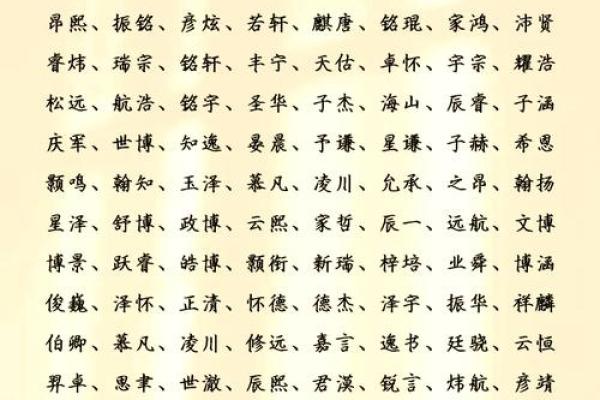 昂熙、振铭、彦炫、若轩、麒唐、铭琨、家鸿、沛贤
睿炜、瑞宗、铭轩、丰宁、天估、卓怀、宇宗、耀浩
松远、航浩、铭宇、圣华、子杰、海山、辰睿、子涵
庆军、世博、知逸、晏晨、予谦、星谦、子赫、希恩
颢鸣、翰知、玉泽、慕凡、凌川、允承、之昂、翰扬
星泽、舒博、政博、云熙、家哲、辰一、远航、文博
博景、跃睿、皓博、颢衔、新瑞、梓培、业舜、博涵
俊巍、泽怀、正清、怀德、德杰、泽宇、振华、祥麟
伯卿、慕凡、凌川、修远、嘉言、逸书、廷骁、云恒
羿卓、思聿、世澈、辰熙、君漠、锐言、炜航、彦靖